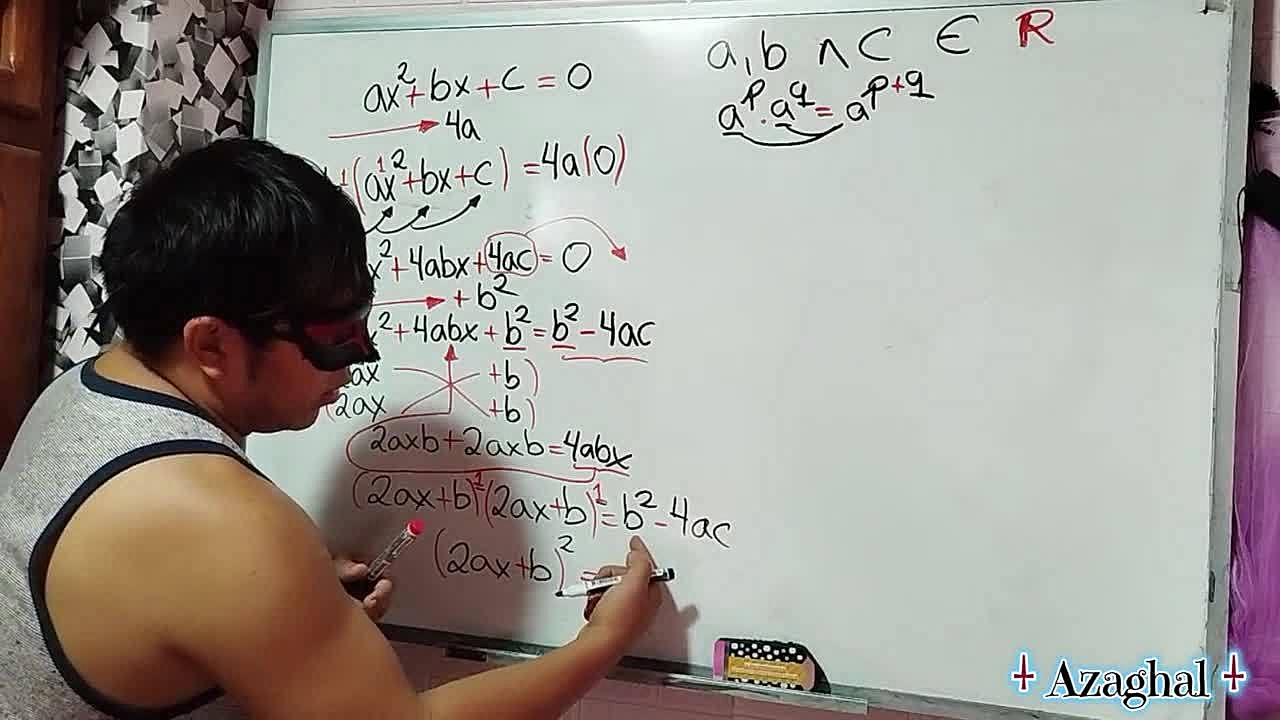 ax²+bx+c=0
4a
(ax¹²+bx+c)=4a(0)
x²+4abx+4ac=0
+b²
x²+4abx+b²=b²-4ac
2ax +b)
(2ax +b)
2axb+2axb=4abx
(2ax+b)¹(2ax+b)¹=b²-4ac
(2ax+b)²=
a,b ∧ C ∈ ℝ
aᵖ·a^q=a^p+q
Azaghal